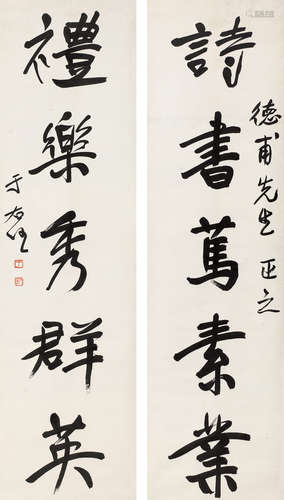 詩書篤素業
德甫先生正之
禮樂秀群英
于右任